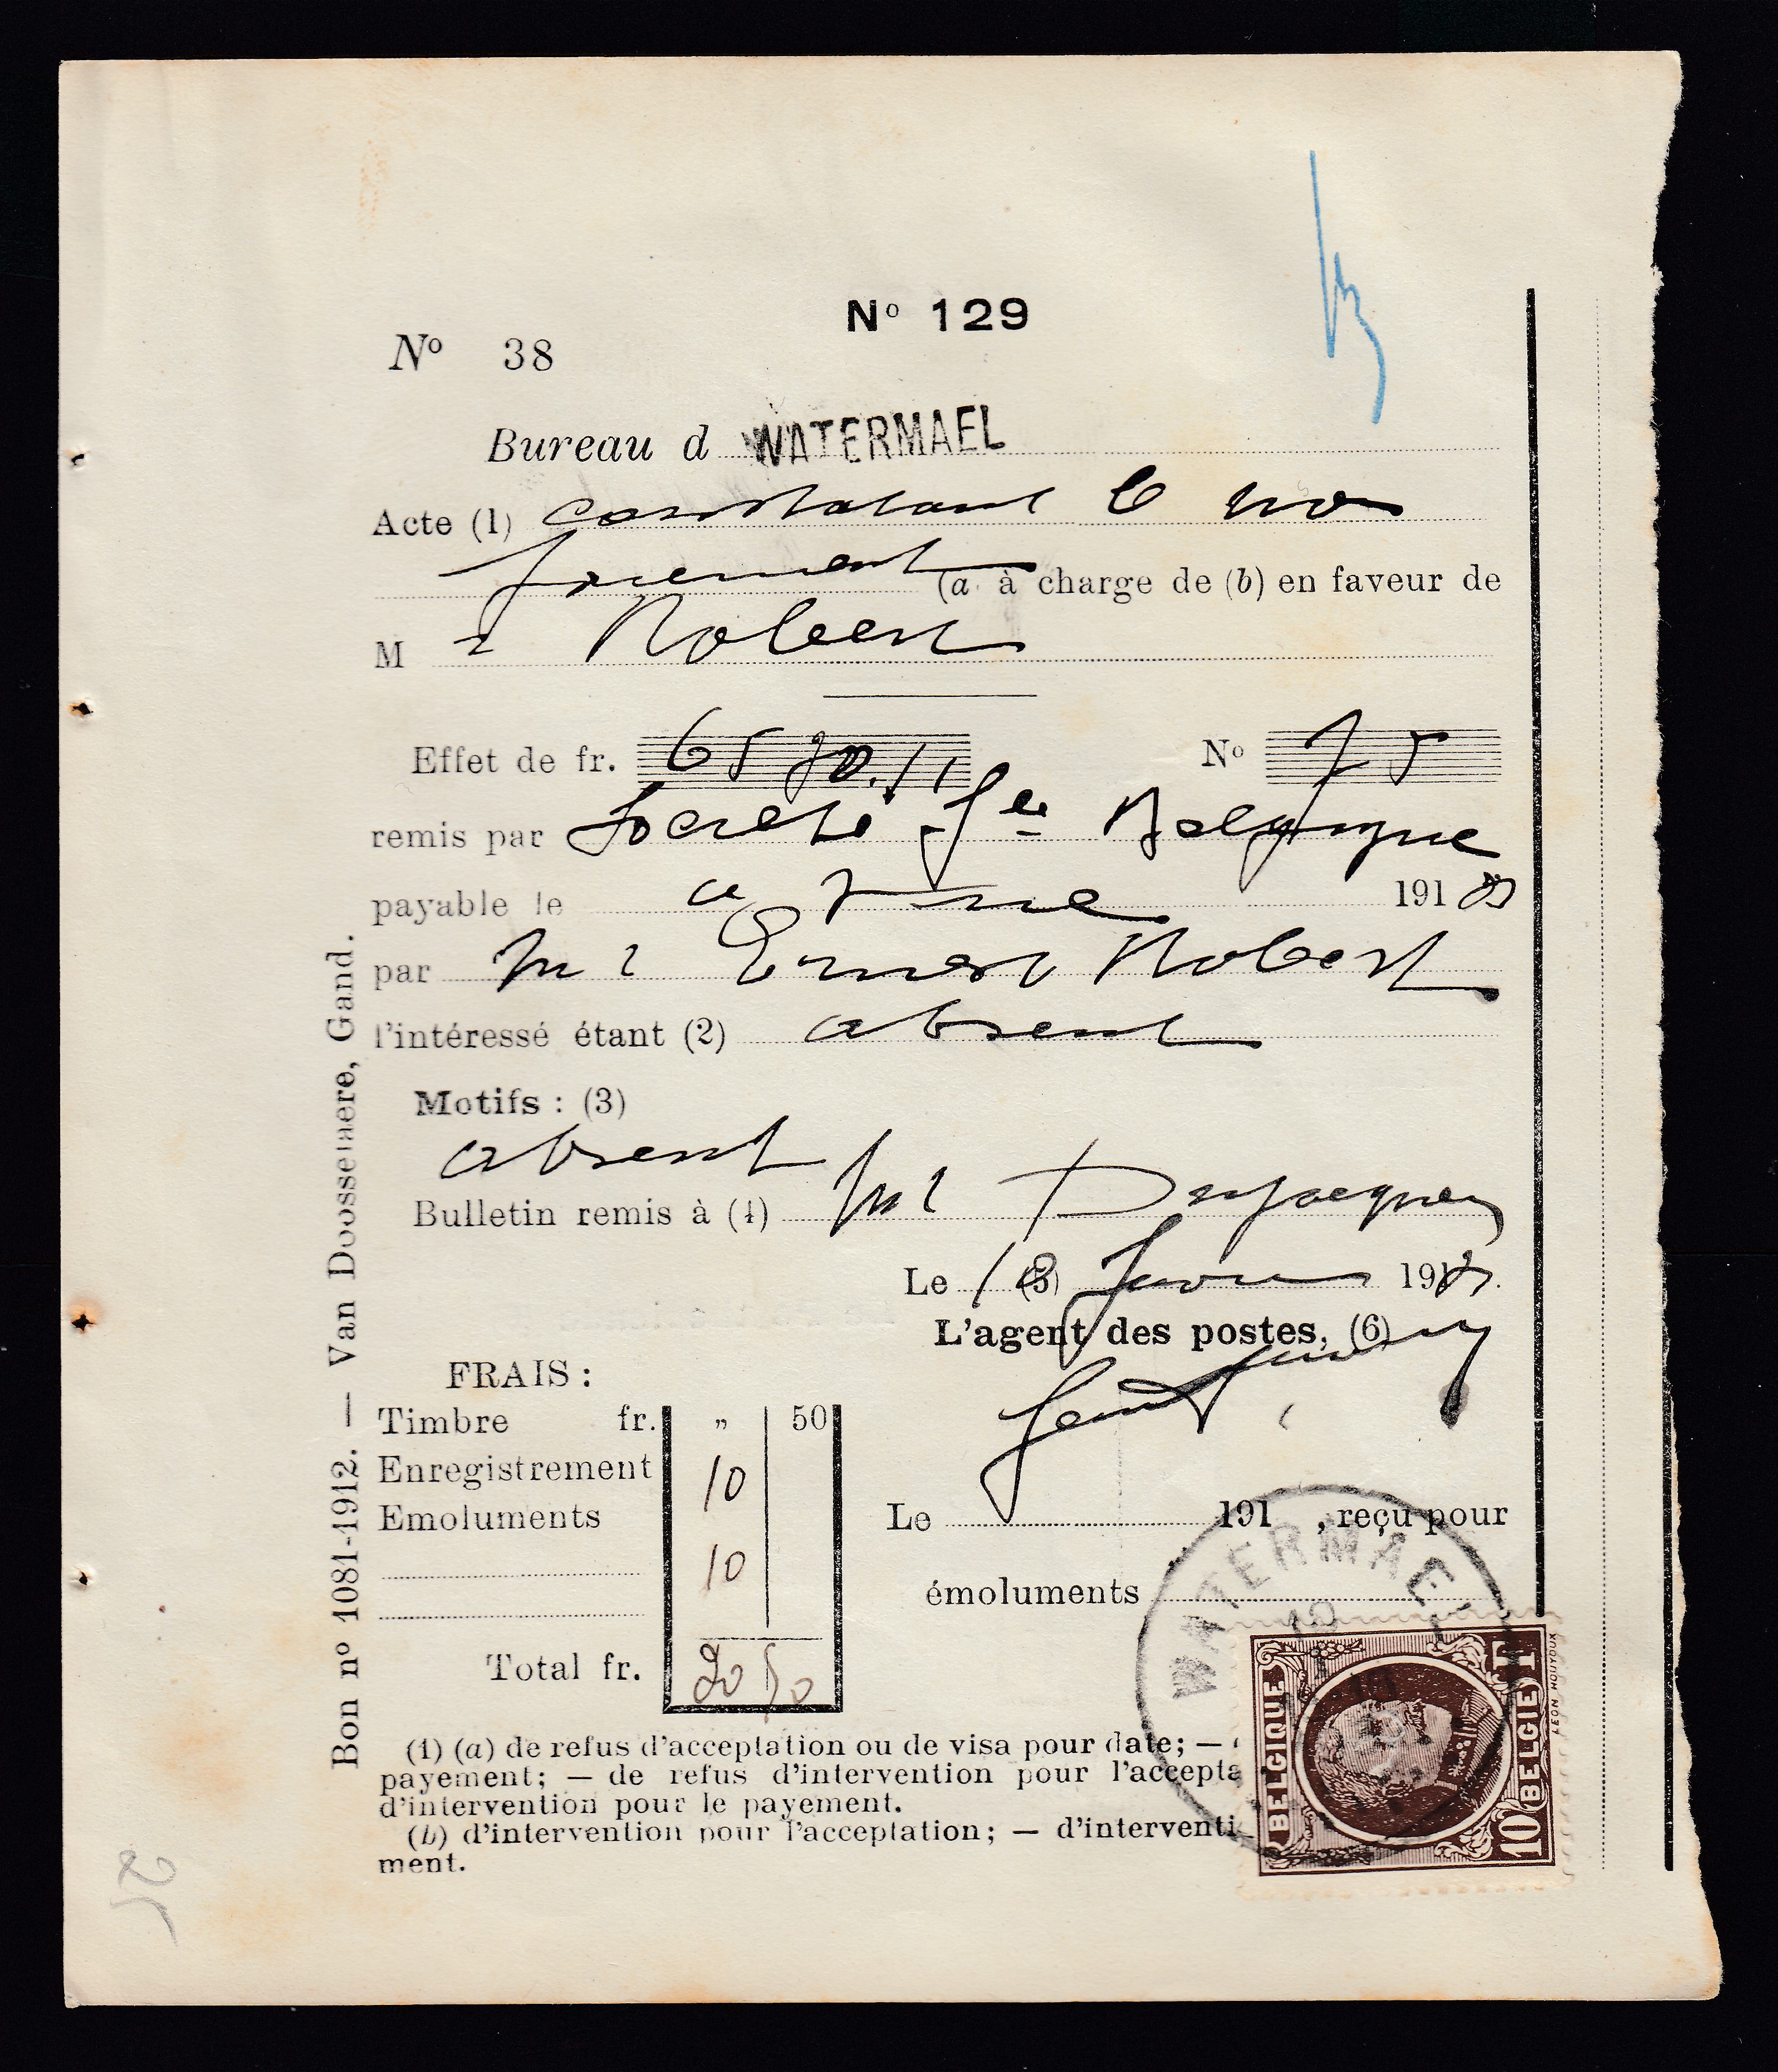 Nº 129
Nº 38
Bureau d WATERMAEL
Acte (1) constatant le non
paiement (a à charge de (b) en faveur de
M r Robert
Effet de fr. Nº 75
remis par Société Gle Belgique
payable le a vue 191
par Mr Ernest Robert
l'intéressé étant (2) absent
Motifs : (3)
absent
Bulletin remis à (4) Mr
Le (5) 191
L'agent des postes, (6)
FRAIS :
Timbre fr. „ 50
Enregistrement 10
Emoluments
10
Total fr. 20 50
Le 191 , reçu pour
émoluments
WATERMAEL
BELGIQUE
BELGIË
10 F
LEON HOUYOUX
(1) (a) de refus d'acceptation ou de visa pour date; —
payement; — de refus d'intervention pour l'accepta
d'intervention pour le payement.
(b) d'intervention pour l'acceptation; — d'interventi
ment.
Bon nº 1081-1912. — Van Doosselaere, Gand.